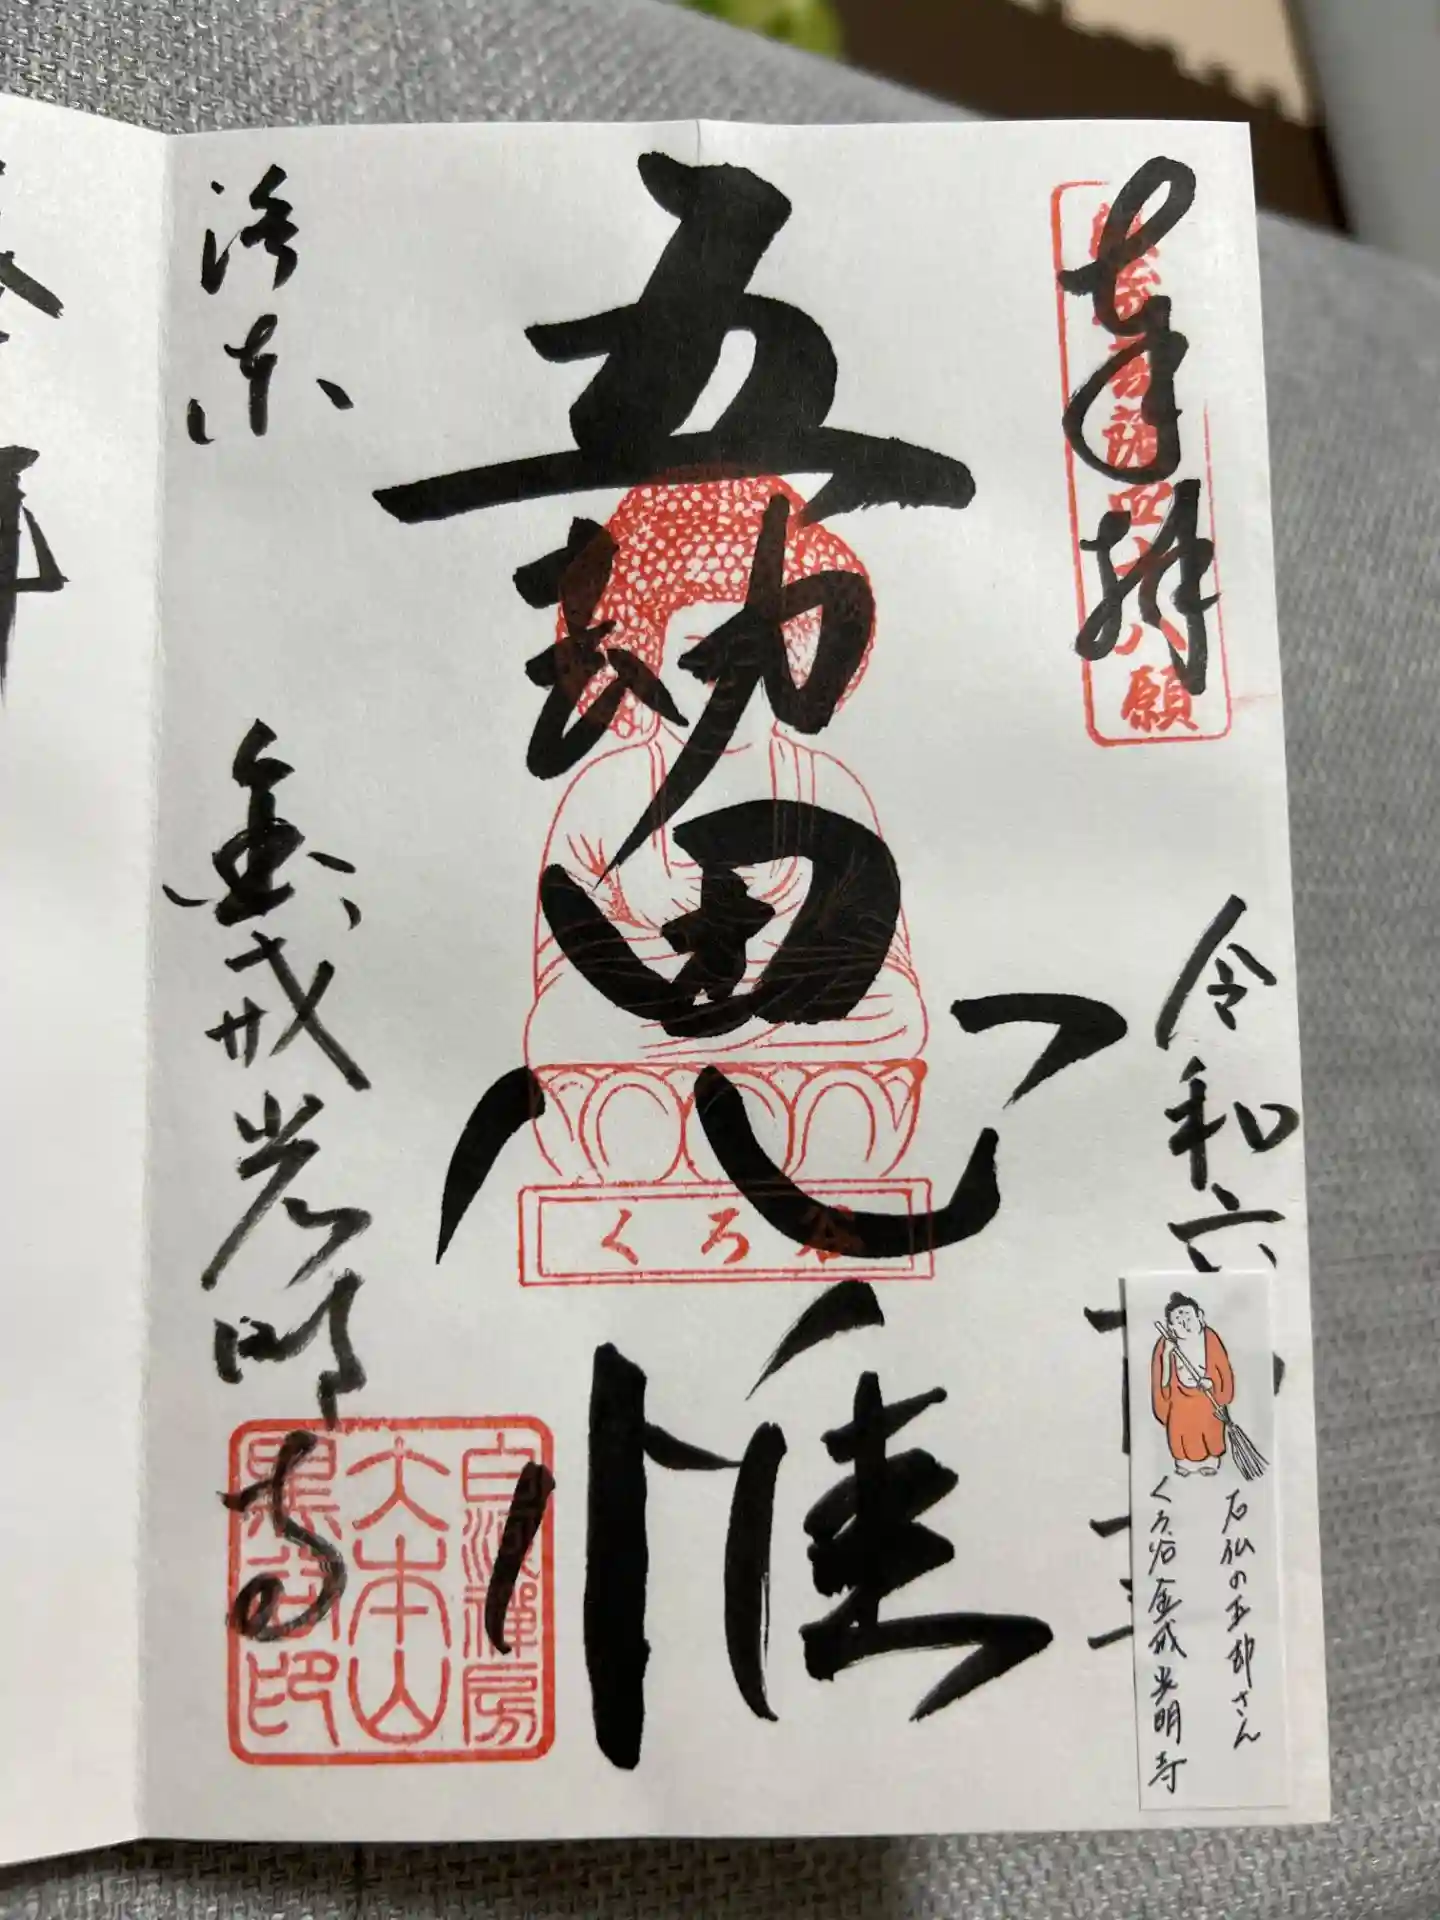 奉拝
四十八願
令和六
五劫思惟
くろ谷
洛東
金戒光明寺
白河禅房
大本山
黒谷印
石仏の玉郎さん
くろ谷金戒光明寺